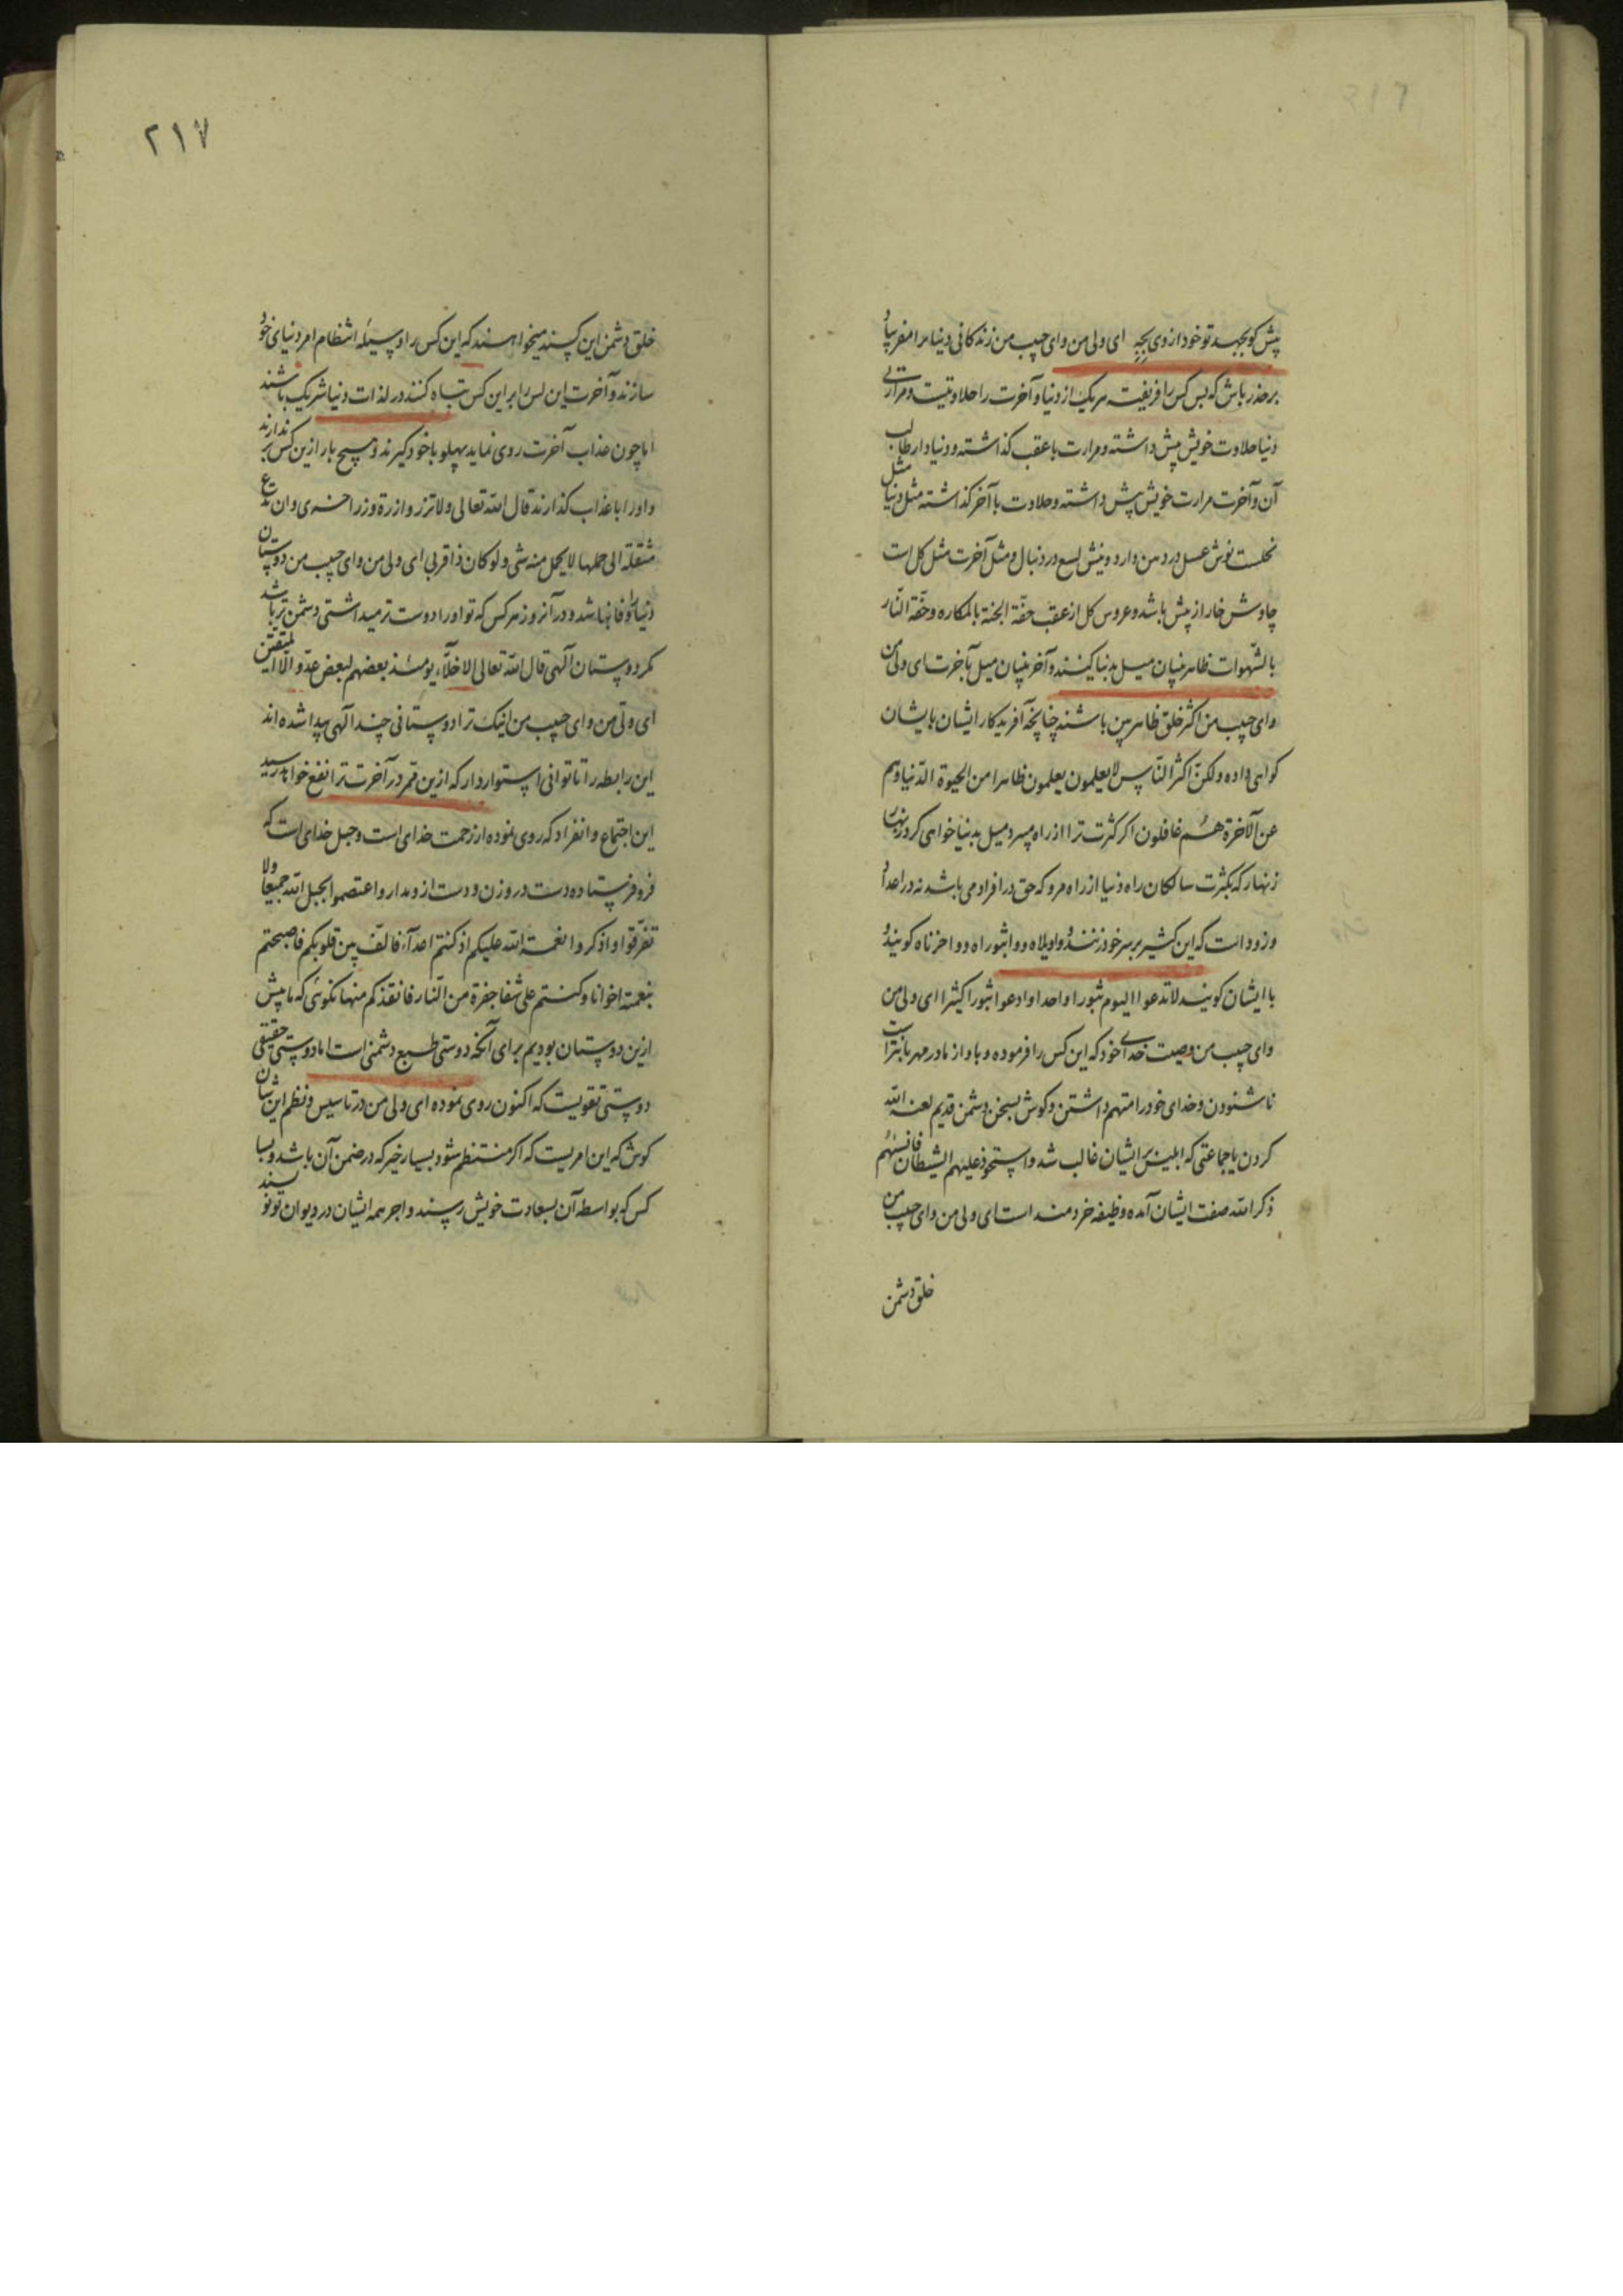 پیش کو بجهد تو خود از وی بجه ای ولی من وای حبیب من زندکانی دنیا مرا مفریباد
برحذر باش که بس کس را فریفته هریک از دنیا و آخرت را حلاوتیست و مرارتی
دنیا حلاوت خویش پیش داشته و مرارت باعقب کذاشته و دنیا دار طالب
آن و آخرت مرارت خویش پیش داشته و حلاوت باآخر کذاشته مثل دنیا مثل
نحلست نوش عسل در دهن دارد و نیش لسع در دنبال و مثل آخرت مثل کل است
چاوش خار از پیش باشد و عروس کل از عقب حفّة الجنة بالمکاره و حفّة النّار
بالشّهوات ظاهربنیان میل بدنیا کنند و آخربنیان میل بآخرت ای ولی من
وای حبیب من اکثر خلق ظاهربین باشند چنانچه آفریدکار ایشان بایشان
کواهی داده ولکنّ اکثر النّاس لایعلمون یعلمون ظاهرا من الحیوة الدّنیا وهم
عن الآخرة هُم غافلون اکر کثرت ترا از راه میبرد میل بدنیا خواهی کرد زنهار
زنهار که بکثرت سالکان راه دنیا از راه مرو که حق در افراد می باشد نه در اعداد
و زود است که این کثیر بر سر خود زنند و واویلاه و واثبوراه و واحزناه کویند و
باایشان کویند لاتدعوا الیوم ثبورا واحدا وادعوا ثبورا کثیرا ای ولی من
وای حبیب من وصیت خدای خود که این کس را فرموده و باو از مادر مهربانتر است
ناشنودن و خدای خود را متهم داشتن و کوش بسخن دشمن قدیم لعنه الله
کردن یا جماعتی که ابلیس بر ایشان غالب شد و استحوذ علیهم الشیطان فانسٰهُم
ذکر الله صفت ایشان آمده وظیفه خردمند است ای ولی من وای حبیب من
خلق دشمن
٢١٧
خلق دشمن این کسند میخواهند که این کس را وسیله انتظام امر دنیای خود
سازند و آخرت این کس را بر این کس تباه کنند در لذات دنیا شریک باشند
اما چون عذاب آخرت روی نماید پهلو باخود کیرند و هیچ بار ازین کس بر ندارند
و او را باعذاب کذارند قال الله تعالی ولاتزر وازرة وزر اخری وان تدع
مثقلة الی حملها لایحمل منه شی ولو کان ذا قربی ای ولی من وای حبیب من دوستان
دنیا را وفا نباشد و در آنروز هر کس که تو او را دوست تر میداشتی دشمن تر باشد
مکر دوستان آلهی قال الله تعالی الاخلّاء یومئذ بعضهم لبعض عدوّ الّا المتّقین
ای ولّی من وای حبیب من اینک ترا دوستانی چند آلهی پیدا شده اند
این رابطه را تا توانی استوار دار که ازین ممر در آخرت ترا نفع خواهد رسید
این اجتماع و انفراد که روی نموده از رحمت خدای است و حبل خدای است که
فرو فرستاده دست در وزن و دست ازو مدار واعتصموا بحبل الله جمیعا ولا
تفرّقوا واذکروا نعمة الله علیکم اذ کنتم اعدآء فالّف بین قلوبکم فاصبحتم
بنعمته اخوانا وکنتم علی شفا حفرة من النّار فانقذکم منها نکوئی که ما پیش
ازین دوستان بودیم برای آنکه دوستی طبع دشمنی است اما دوستی حقیقی
دوستی تقویست که اکنون روی نموده ای ولی من در تاسیس و نظم این شان
کوش که این امریست که اکر منتظم شود بسیار خیر که در ضمن آن باشد و بسا
کس که بواسطه آن بسعادت خویش رسند و اجر همه ایشان در دیوان تو نویسند